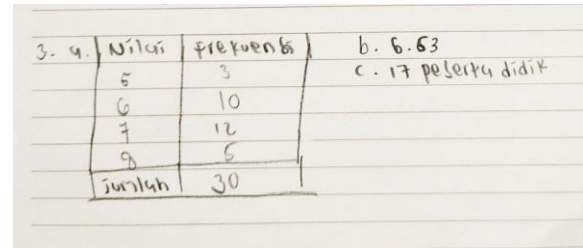 3. a. Nilai Frekuensi
5 3
6 10
7 12
8 5
jumlah 30
b. 6.63
c. 17 peserta didik